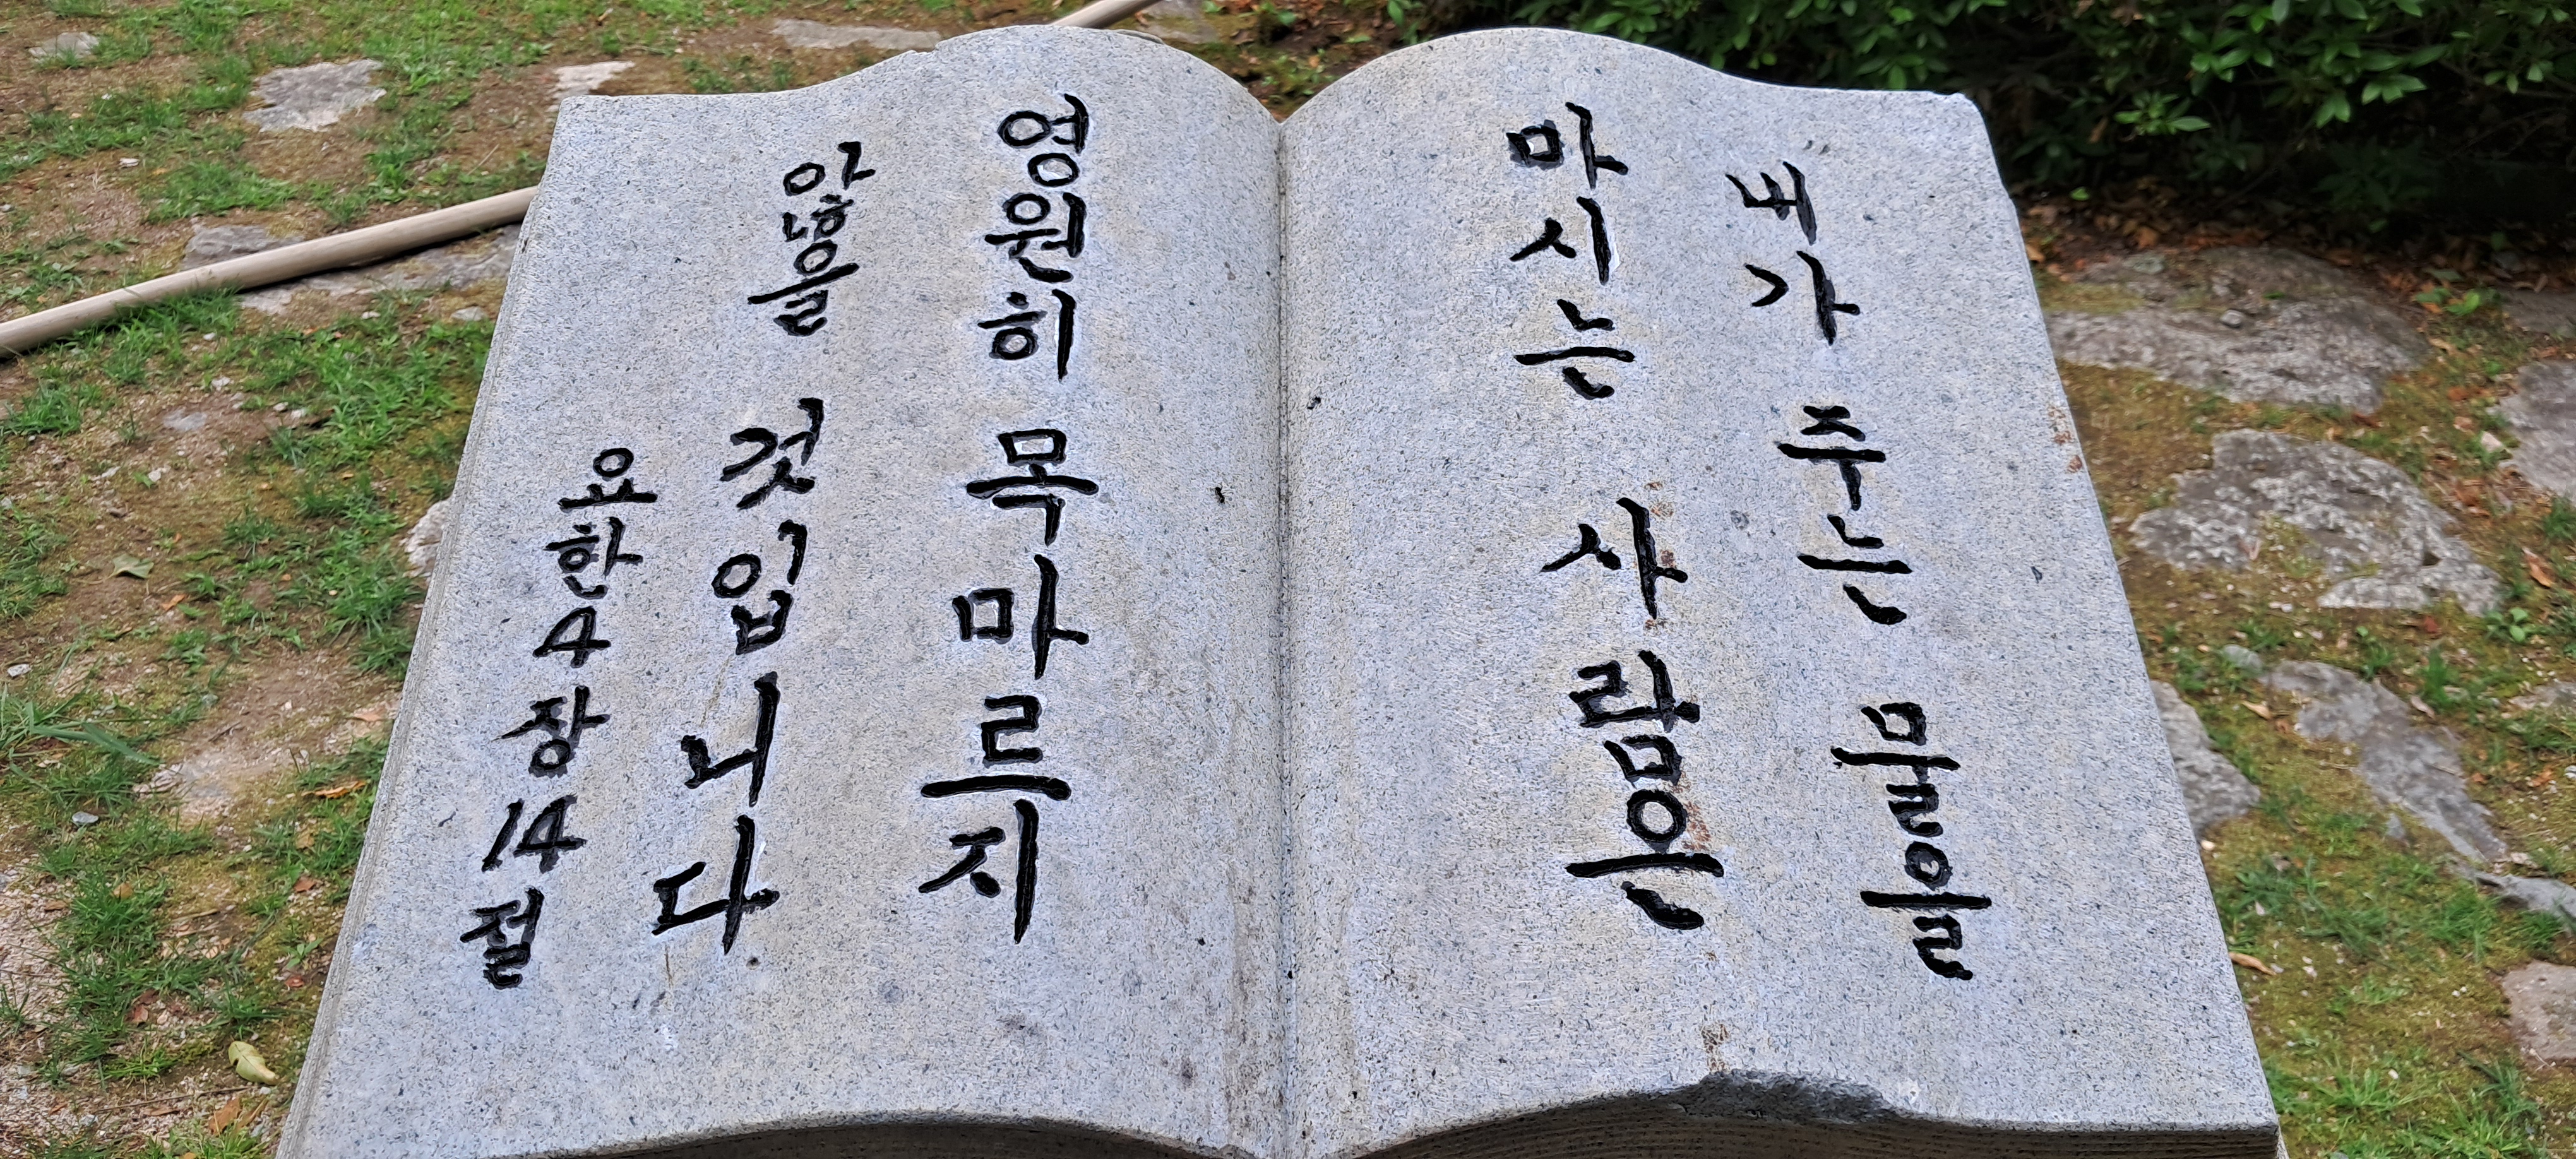 내가 주는 물을
마시는 사람은
영원히 목마르지
않을 것입니다
요한4장14절